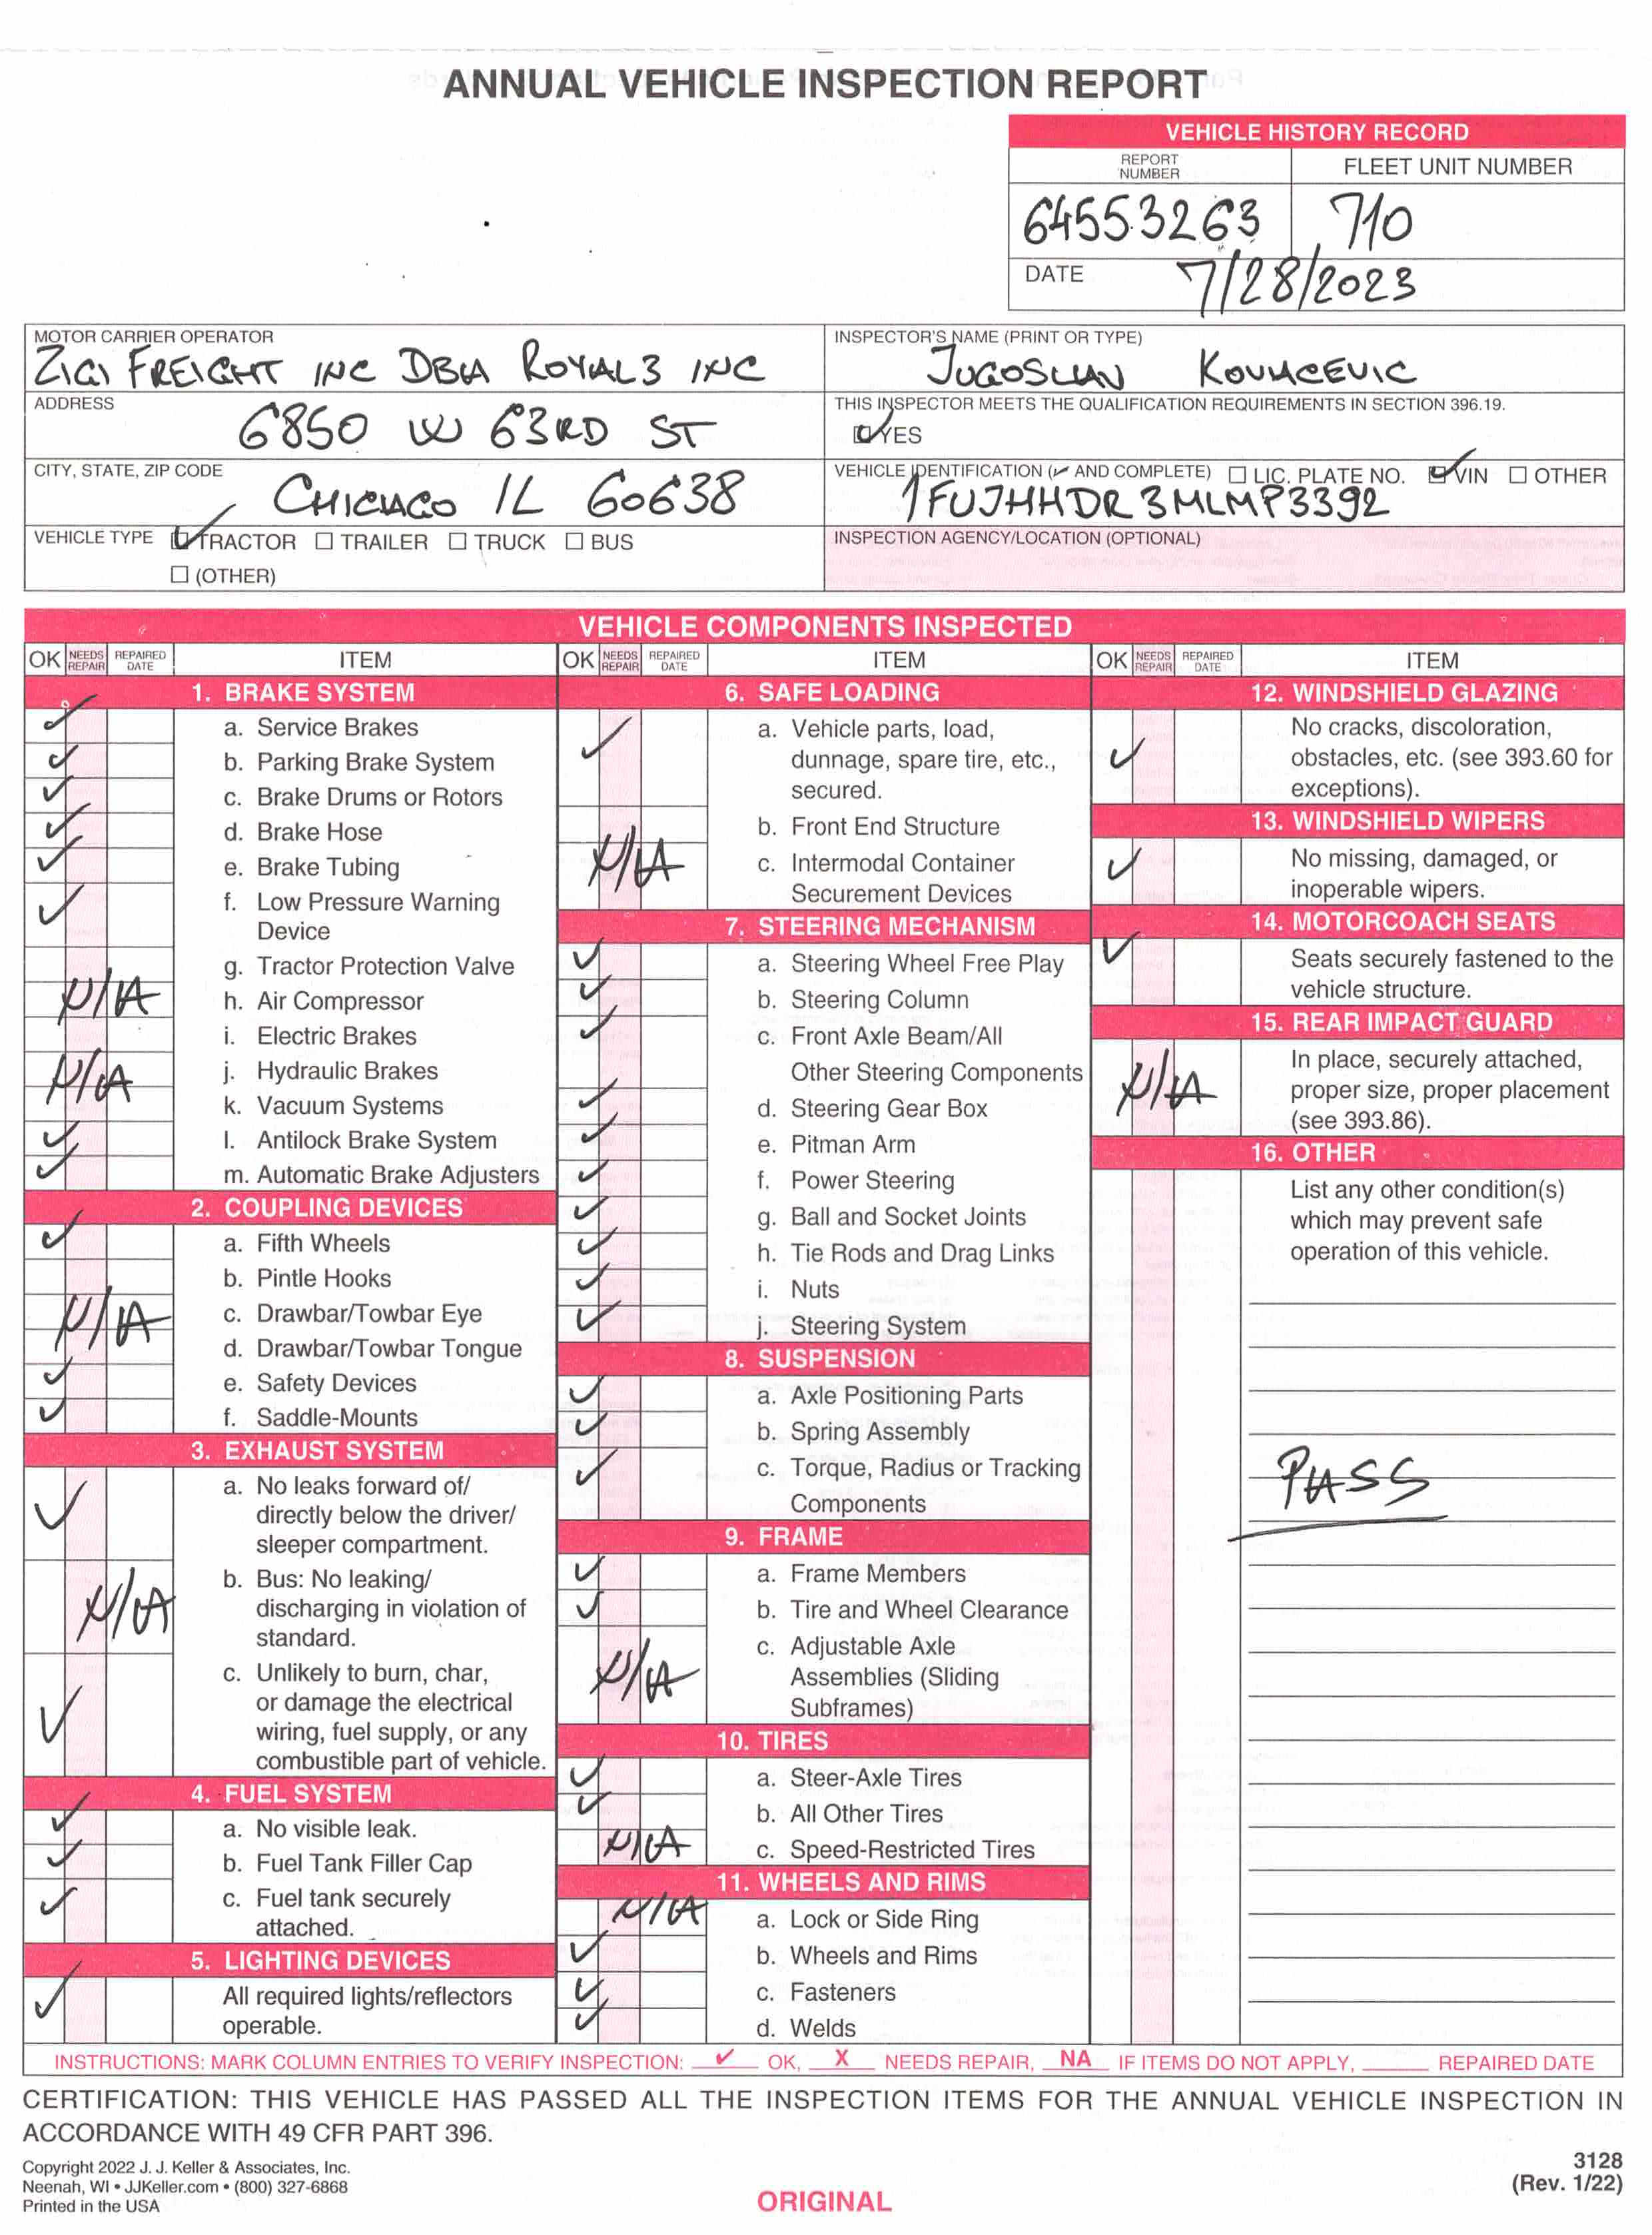 ANNUAL VEHICLE INSPECTION REPORT
VEHICLE HISTORY RECORD
REPORT NUMBER
FLEET UNIT NUMBER
64553263
710
DATE 7/28/2023
MOTOR CARRIER OPERATOR
ZIGI FREIGHT INC DBA ROYAL3 INC
INSPECTOR'S NAME (PRINT OR TYPE)
JUGOSLAV KOVACEVIC
ADDRESS
6850 W 63RD ST
THIS INSPECTOR MEETS THE QUALIFICATION REQUIREMENTS IN SECTION 396.19.
YES
CITY, STATE, ZIP CODE
CHICAGO IL 60638
VEHICLE IDENTIFICATION (✓ AND COMPLETE) ☐ LIC. PLATE NO. ☑ VIN ☐ OTHER
1FUJHHDR3MLMP3392
VEHICLE TYPE ☑ TRACTOR ☐ TRAILER ☐ TRUCK ☐ BUS
☐ (OTHER)
INSPECTION AGENCY/LOCATION (OPTIONAL)
VEHICLE COMPONENTS INSPECTED
OK NEEDS REPAIR REPAIRED DATE ITEM
1. BRAKE SYSTEM
✓ a. Service Brakes
✓ b. Parking Brake System
✓ c. Brake Drums or Rotors
✓ d. Brake Hose
✓ e. Brake Tubing
✓ f. Low Pressure Warning
Device
g. Tractor Protection Valve
N/A h. Air Compressor
i. Electric Brakes
N/A j. Hydraulic Brakes
k. Vacuum Systems
✓ l. Antilock Brake System
✓ m. Automatic Brake Adjusters
2. COUPLING DEVICES
✓ a. Fifth Wheels
b. Pintle Hooks
N/A c. Drawbar/Towbar Eye
d. Drawbar/Towbar Tongue
✓ e. Safety Devices
✓ f. Saddle-Mounts
3. EXHAUST SYSTEM
✓ a. No leaks forward of/
directly below the driver/
sleeper compartment.
N/A b. Bus: No leaking/
discharging in violation of
standard.
✓ c. Unlikely to burn, char,
or damage the electrical
wiring, fuel supply, or any
combustible part of vehicle.
4. FUEL SYSTEM
✓ a. No visible leak.
✓ b. Fuel Tank Filler Cap
✓ c. Fuel tank securely
attached.
5. LIGHTING DEVICES
✓ All required lights/reflectors
operable.
OK NEEDS REPAIR REPAIRED DATE ITEM
6. SAFE LOADING
✓ a. Vehicle parts, load,
dunnage, spare tire, etc.,
secured.
b. Front End Structure
N/A c. Intermodal Container
Securement Devices
7. STEERING MECHANISM
✓ a. Steering Wheel Free Play
✓ b. Steering Column
✓ c. Front Axle Beam/All
Other Steering Components
✓ d. Steering Gear Box
✓ e. Pitman Arm
✓ f. Power Steering
✓ g. Ball and Socket Joints
✓ h. Tie Rods and Drag Links
✓ i. Nuts
✓ j. Steering System
8. SUSPENSION
✓ a. Axle Positioning Parts
✓ b. Spring Assembly
✓ c. Torque, Radius or Tracking
Components
9. FRAME
✓ a. Frame Members
✓ b. Tire and Wheel Clearance
N/A c. Adjustable Axle
Assemblies (Sliding
Subframes)
10. TIRES
✓ a. Steer-Axle Tires
✓ b. All Other Tires
N/A c. Speed-Restricted Tires
11. WHEELS AND RIMS
N/A a. Lock or Side Ring
✓ b. Wheels and Rims
✓ c. Fasteners
✓ d. Welds
OK NEEDS REPAIR REPAIRED DATE ITEM
12. WINDSHIELD GLAZING
No cracks, discoloration,
✓ obstacles, etc. (see 393.60 for
exceptions).
13. WINDSHIELD WIPERS
✓ No missing, damaged, or
inoperable wipers.
14. MOTORCOACH SEATS
✓ Seats securely fastened to the
vehicle structure.
15. REAR IMPACT GUARD
In place, securely attached,
N/A proper size, proper placement
(see 393.86).
16. OTHER
List any other condition(s)
which may prevent safe
operation of this vehicle.
PASS
INSTRUCTIONS: MARK COLUMN ENTRIES TO VERIFY INSPECTION: ✓ OK, X NEEDS REPAIR, NA IF ITEMS DO NOT APPLY, REPAIRED DATE
CERTIFICATION: THIS VEHICLE HAS PASSED ALL THE INSPECTION ITEMS FOR THE ANNUAL VEHICLE INSPECTION IN
ACCORDANCE WITH 49 CFR PART 396.
Copyright 2022 J. J. Keller & Associates, Inc.
Neenah, WI • JJKeller.com • (800) 327-6868
Printed in the USA
ORIGINAL
3128
(Rev. 1/22)